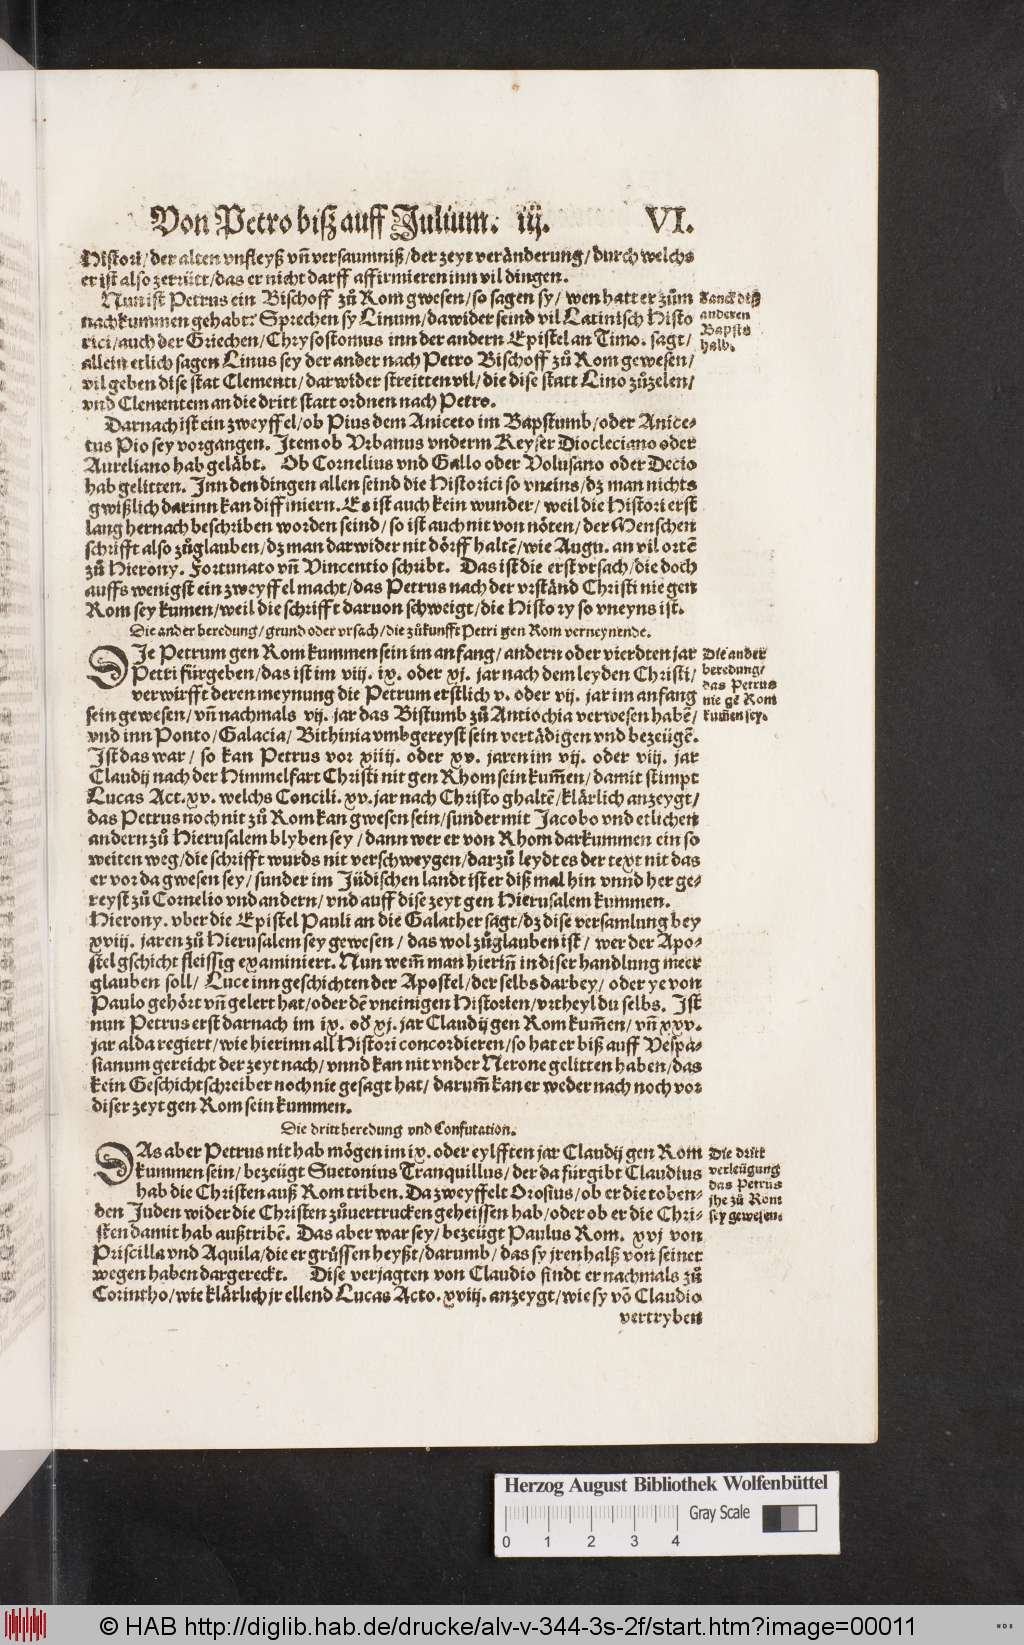 Von Petro biß auff Julium. iij. VI.
Histori/ der alten vnfleyß vñ versaumniß/ der zeyt veränderung/ durch welchs
er ist also zerrütt/ das er nicht darff affirmieren inn vil dingen.
Nun ist Petrus ein Bischoff zů Rom gwesen/ so sagen sy/ wen hatt er zům
nachkummen gehabt? Sprechen sy Linum/ dawider seind vil Latinisch Histo
rici/ auch der Griechen/ Chrysostomus inn der andern Epistel an Timo. sagt/
allein etlich sagen Linus sey der ander nach Petro Bischoff zů Rom gewesen/
vil geben dise stat Clementi/ darwider streitten vil/ die dise statt Lino zůzelen/
vnd Clementem an die dritt statt ordnen nach Petro.
Zanck deß
anderen
Bapsts
halb.
Darnach ist ein zweyffel/ ob Pius dem Aniceto im Bapstumb/ oder Anice-
tus Pio sey vorgangen. Item ob Vrbanus vnderm Keyser Diocleciano oder
Aureliano hab geläbt. Ob Cornelius vnd Gallo oder Volusano oder Decio
hab gelitten. Inn den dingen allen seind die Historici so vneins/ dz man nichts
gwißlich darinn kan diffiniern. Es ist auch kein wunder/ weil die Histori erst
lang hernach beschriben worden seind/ so ist auch nit von nöten/ der Menschen
schrifft also zůglauben/ dz man darwider nit dörff haltẽ/ wie Augu. an vil ortẽ
zů Hierony. Fortunato vñ Vincentio schribt. Das ist die erst vrsach/ die doch
auffs wenigst ein zweyffel macht/ das Petrus nach der vrständ Christi nie gen
Rom sey kumen/ weil die schrifft daruon schweigt/ die History so vneyns ist.
Die ander beredung/ grund oder vrsach/ die zůkunfft Petri gen Rom verneynende.
DIe Petrum gen Rom kummen sein im anfang/ andern oder vierdten jar
Petri fürgeben/ das ist im viij. ix. oder xj. jar nach dem leyden Christi/
verwirfft deren meynung die Petrum erstlich v. oder vij. jar im anfang
sein gewesen/ vñ nachmals vij. jar das Bistumb zů Antiochia verwesen habẽ/
vnd inn Ponto/ Galacia/ Bithinia vmbgereyst sein vertädigen vnd bezeügẽ.
Ist das war/ so kan Petrus vor xiiij. oder xv. jaren im vij. oder viij. jar
Claudij nach der Himmelfart Christi nit gen Rhom sein kum̃en/ damit stimpt
Lucas Act. xv. welchs Concili. xv. jar nach Christo ghaltẽ/ klärlich anzeygt/
das Petrus noch nit zů Rom kan gwesen sein/ sunder mit Jacobo vnd etlichen
andern zů Hierusalem blyben sey/ dann wer er von Rhom dar kummen ein so
weiten weg/ die schrifft wurds nit verschweygen/ darzů leydt es der text nit das
er vor da gwesen sey/ sunder im Jüdischen landt ist er diß mal hin vnnd her ge-
reyst zů Cornelio vnd andern/ vnd auff dise zeyt gen Hierusalem kummen.
Die ander
beredung/
das Petrus
nie gẽ Rom
kum̃en sey.
Hierony. vber die Epistel Pauli an die Galather sagt/ dz dise versamlung bey
xviij. jaren zů Hierusalem sey gewesen/ das wol zůglauben ist/ wer der Apo-
stel gschicht fleissig examiniert. Nun wem̃ man hierin̄ in diser handlung meer
glauben soll/ Luce inn geschichten der Apostel/ der selbs darbey/ oder ye von
Paulo gehört vñ gelert hat/ oder dẽ vneinigen Historien/ vrtheyl du selbs. Ist
nun Petrus erst darnach im ix. oď xj. jar Claudij gen Rom kum̃en/ vñ xxv.
jar alda regiert/ wie hierinn all Histori concordieren/ so hat er biß auff Vespa-
sianum gereicht der zeyt nach/ vnnd kan nit vnder Nerone gelitten haben/ das
kein Geschichtschreiber noch nie gesagt hat/ darum̃ kan er weder nach noch vor
diser zeyt gen Rom sein kummen.
Die dritt beredung vnd Confutation.
DAs aber Petrus nit hab mögen im ix. oder eylfften jar Claudij gen Rom
kummen sein/ bezeügt Suetonius Tranquillus/ der da fürgibt Claudius
hab die Christen auß Rom triben. Da zweyffelt Orosius/ ob er die toben-
den Juden wider die Christen zůvertrucken geheissen hab/ oder ob er die Chri-
sten damit hab außtribẽ. Das aber war sey/ bezeügt Paulus Rom. xvj von
Priscilla vnd Aquila/ die er grůssen heyßt/ darumb/ das sy jren halß von seinet
wegen haben dargereckt. Dise verjagten von Claudio findt er nachmals zů
Corintho/ wie klärlich jr ellend Lucas Acto. xviij. anzeygt/ wie sy võ Claudio
vertryben
Die dritt
verleügung
das Petrus
jhe zů Rom
sey gewesen.
Herzog August Bibliothek Wolfenbüttel
0 1 2 3 4
Gray Scale
© HAB http://diglib.hab.de/drucke/alv-v-344-3s-2f/start.htm?image=00011